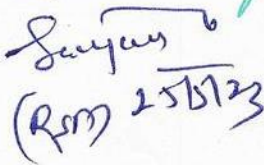 Sanjay
(RSM) 25/5/23